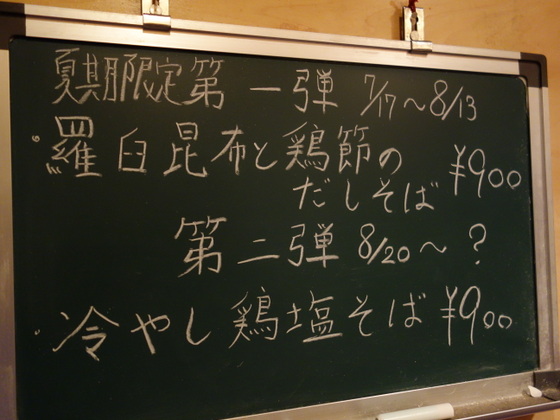 夏期限定第一弾 7/17〜8/13
羅臼昆布と鶏節の
だしそば ¥900
第二弾 8/20〜?
冷やし鶏塩そば ¥900